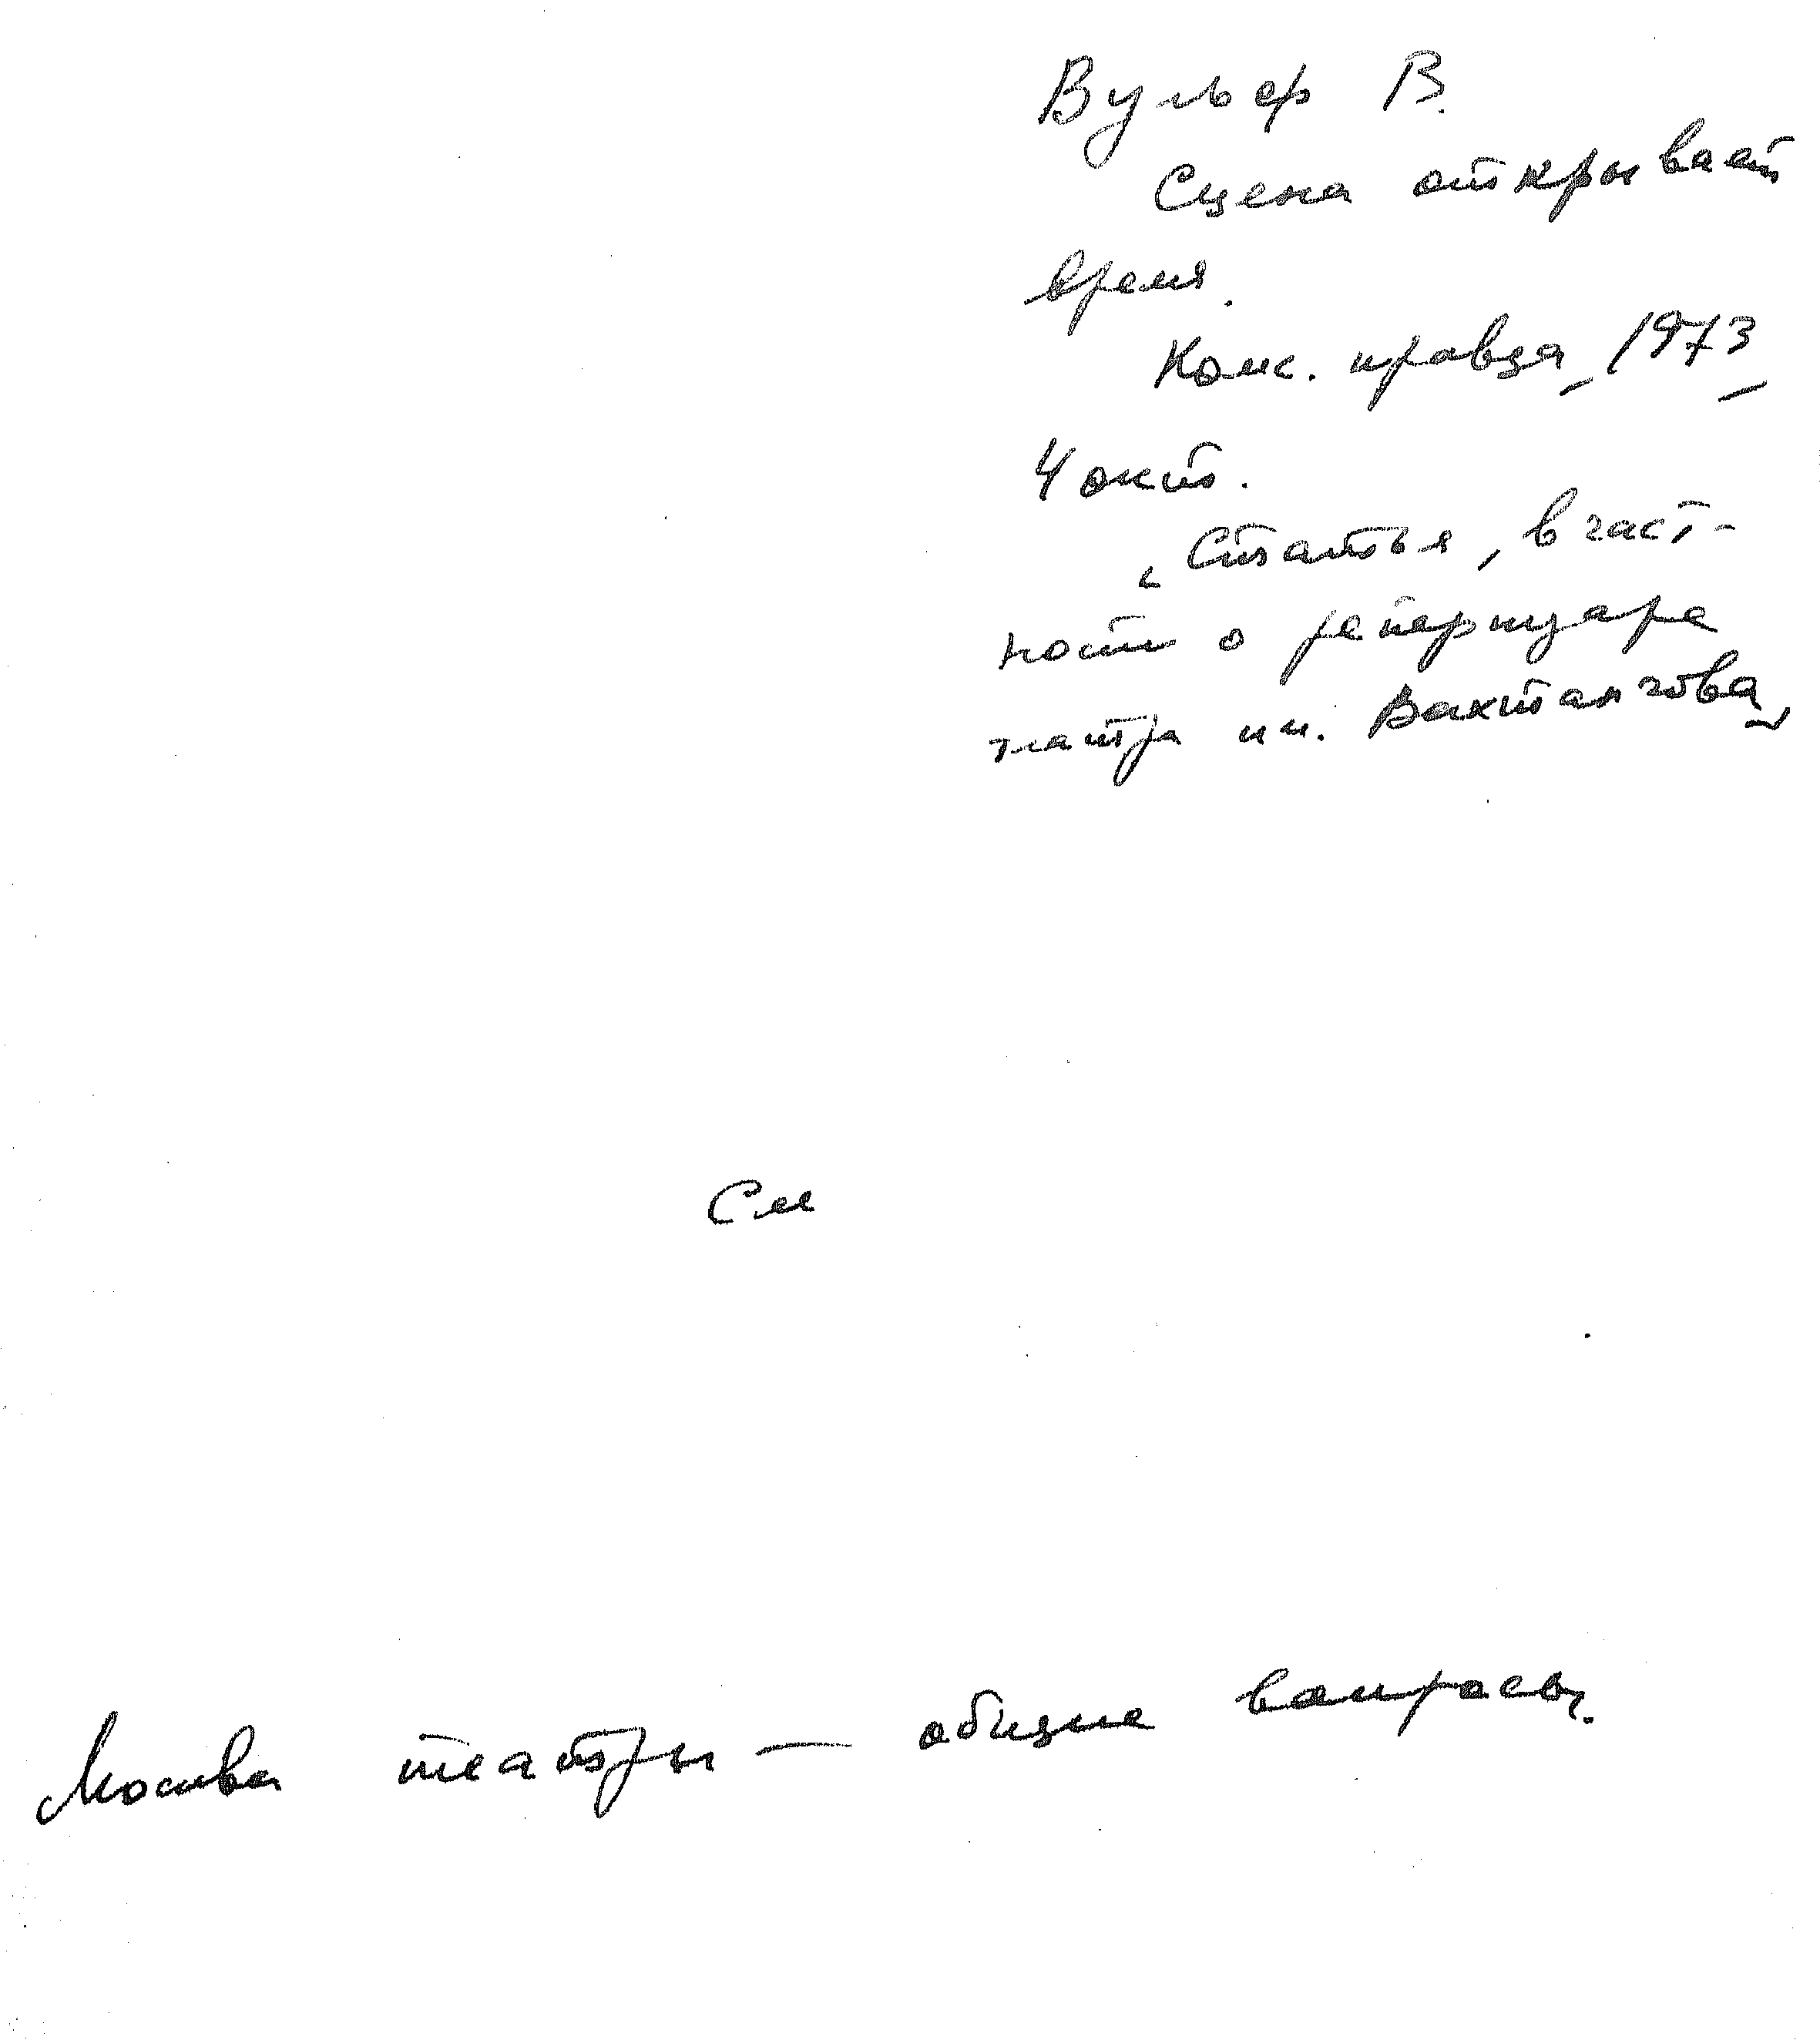 Вульф В.
Сцена открывает
время.
Комс. правда, 1973,
4 окт.
„Статья, в част-
ности о репертуаре
театра им. Вахтангова
См
Москва театры — общие вопросы.